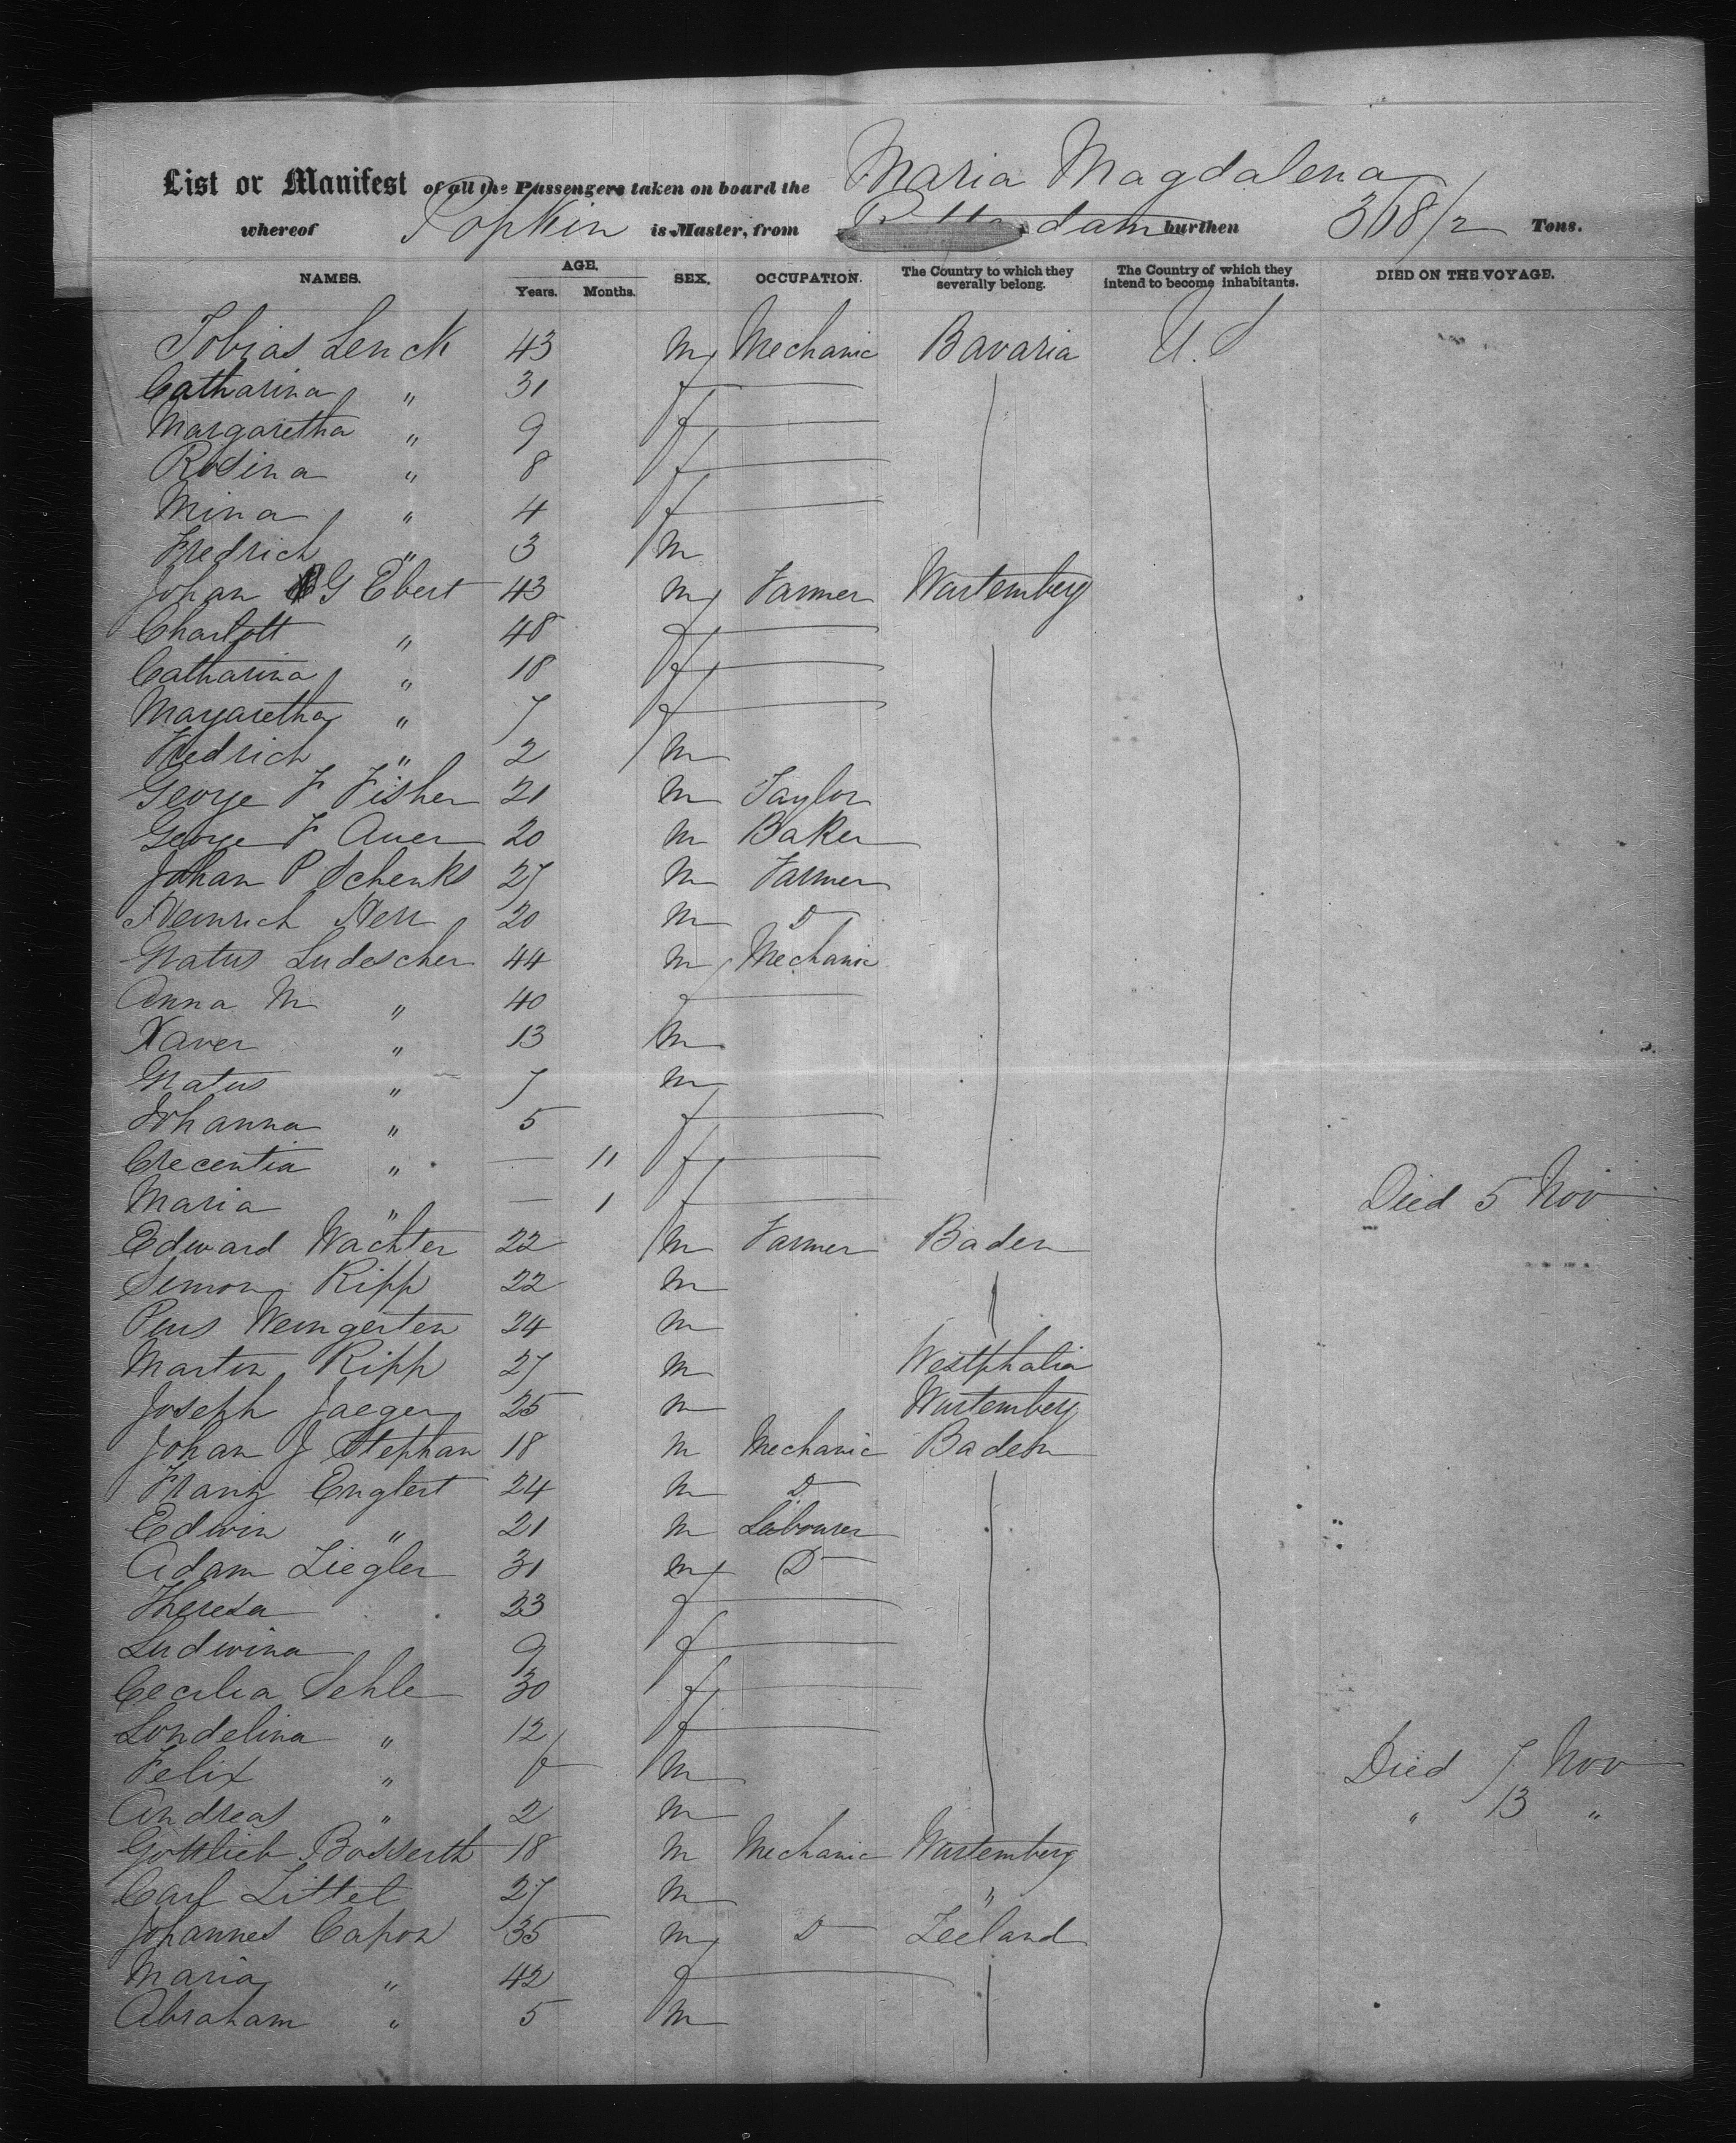 List or Manifest of all the Passengers taken on board the Maria Magdalena
whereof Popkin is Master, from dam burthen 368/2 Tons.
NAMES. AGE. Years. Months. SEX. OCCUPATION. The Country to which they severally belong. The Country of which they intend to become inhabitants. DIED ON THE VOYAGE.
Tobias Lenck 43 m Mechanic Bavaria U.S
Catharina " 31 f
Margaretha " 9 f
Rosina " 8 f
Mina " 4 f
Fredrich " 3 m
Johan G Ebert 43 m Farmer Wurtemberg
Charlott " 48 f
Catharina " 18 f
Margaretha " 7 f
Fredrich " 2 m
George F Fisher 21 m Taylor
George F Auer 20 m Baker
Johan P Schenks 27 m Farmer
Heinrich Herr 20 m D
Gnatus Ludescher 44 m Mechanic
Anna M " 40 f
Xaver " 13 m
Gnatus " 7 m
Johanna " 5 f
Crecentia " — 11 f
Maria " — 1 f Died 5 Nov
Edward Wachter 22 m Farmer Baden
Simon Ripp 22 m
Pius Weingerten 24 m
Martin Ripp 27 m Westphalia
Joseph Jaeger 25 m Wurtemberg
Johan J Stephan 18 m Mechanic Baden
Franz Englert 24 m D
Edwin " 21 m Labourer
Adam Ziegler 31 m D
Theresa 23 f
Ludwina 9 f
Cecilia Sehle 30 f
Londelina " 12 f
Felix " m Died 7 Nov
Andreas " 2 m " 13 "
Gottlieb Bosserth 18 m Mechanic Wurtemberg
Carl Littel 27 m "
Johannes Capon 35 m D Zeeland
Maria " 42 f
Abraham " 5 m